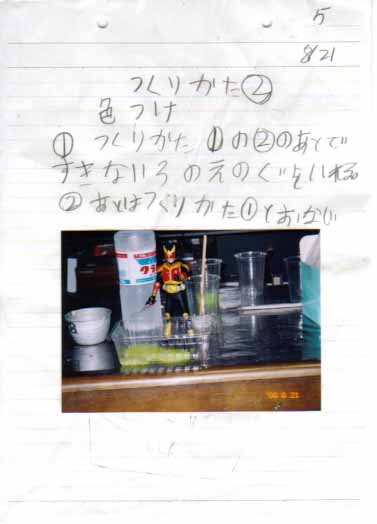 5
8/21
つくりかた②
色つけ
① つくりかた①の②のあとで
すきないろのえのぐをいれる
② あとはつくりかた①とおなじ
'00 8 21